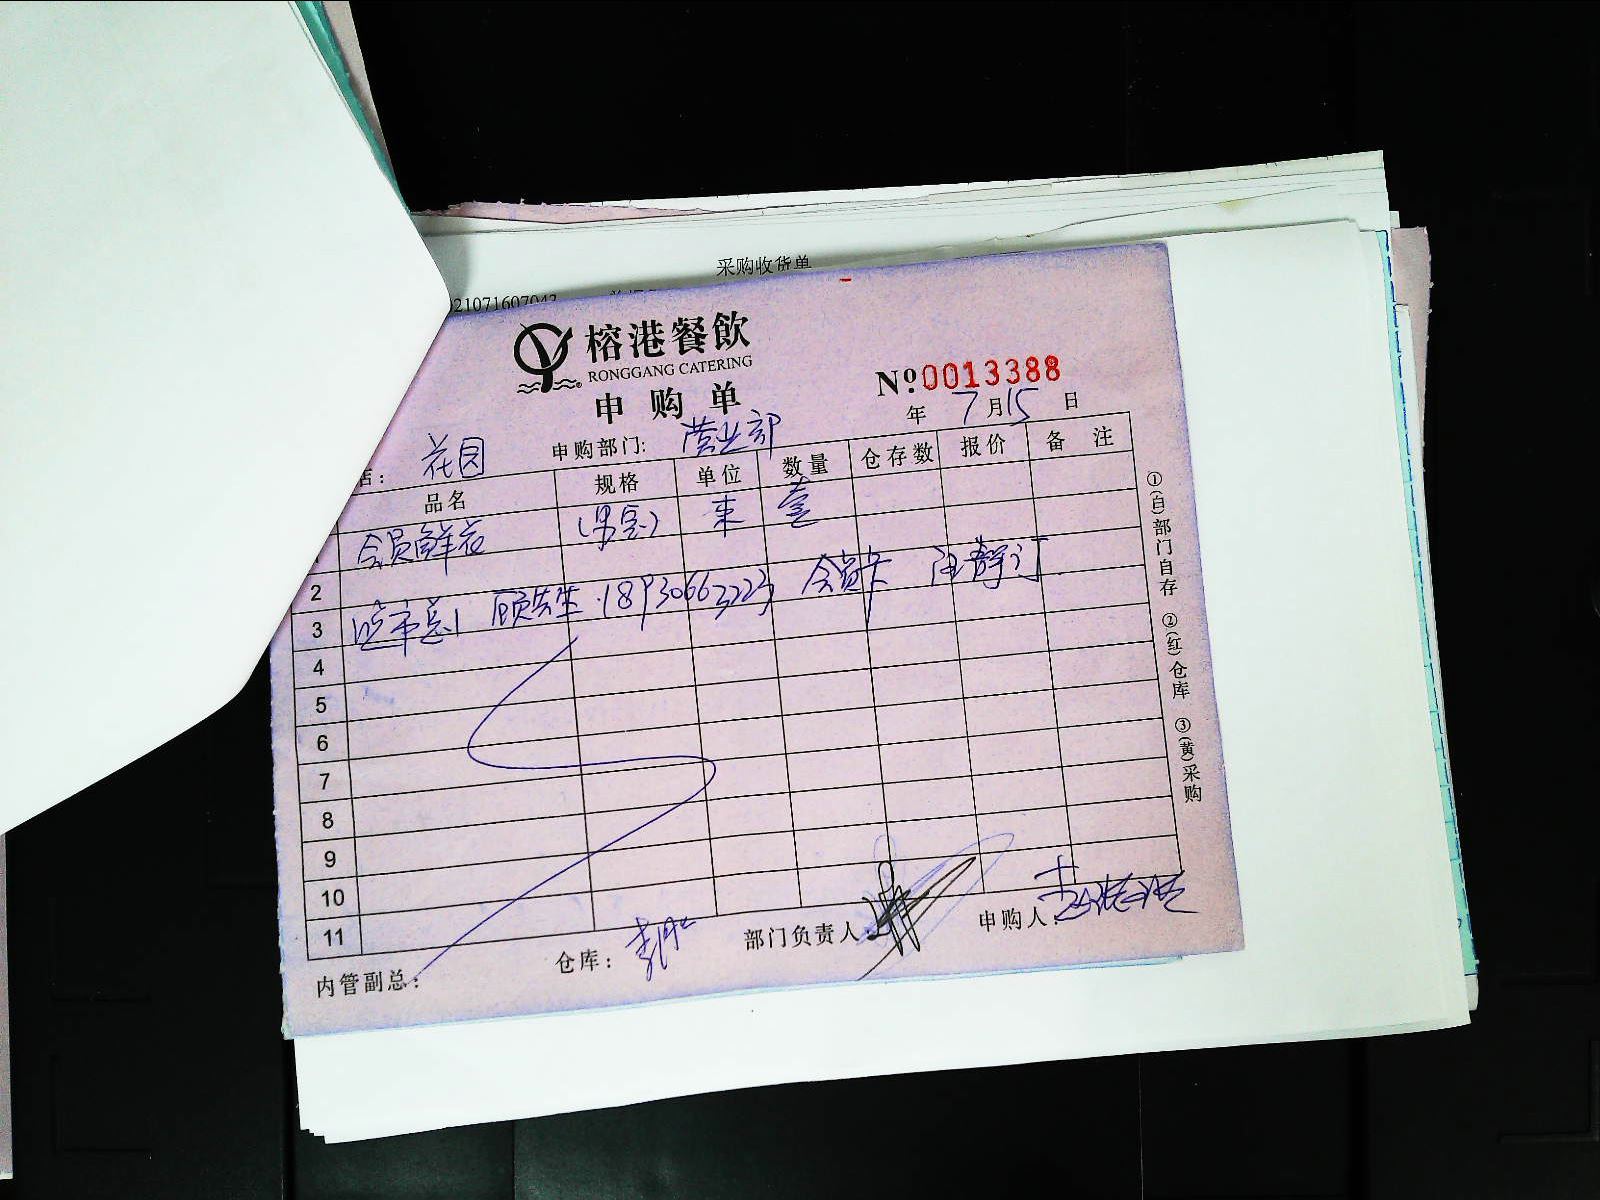 采购收货单
21071607043
榕港餐飲
RONGGANG CATERING
申购单
Nº0013388
年 7月15日
店: 花园 申购部门: 营业部
品名 规格 单位 数量 仓存数 报价 备注
会员鲜花 (男宾) 束 壹
2
3 顾先生 18930663223 会员卡 汪静订
4
5
6
7
8
9
10
11
内管副总: 仓库: 部门负责人: 申购人:
①(白)部门自存 ②(红)仓库 ③(黄)采购